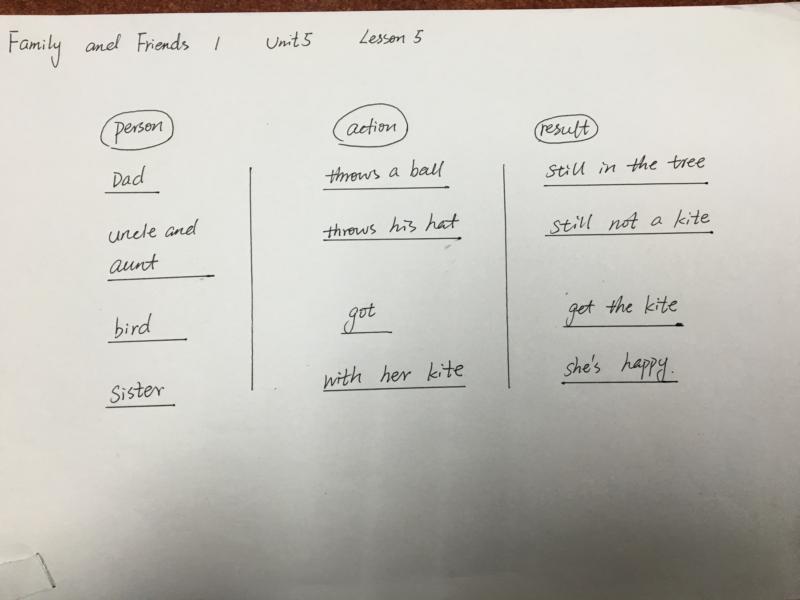 Family and Friends 1 Unit5 Lesson 5
person action result
Dad throws a ball still in the tree
uncle and throws his hat still not a kite
aunt
bird got get the kite
Sister with her kite she's happy.